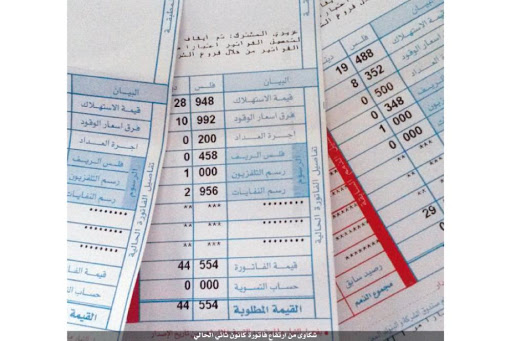 عزيزي المشترك: تم ايقاف
لتحصيل الفواتير اعتبارا
الفواتير من خلال فروع
البيان
فلس
دينار
قيمة الاستهلاك
948
28
فرق اسعار الوقود
992
10
اجرة العداد
200
0
فلس الريف
458
0
رسم التلفزيون
000
1
رسم النفايات
956
2
الرسوم
تفاصيل الفاتورة الحالية
قيمة الفاتورة
554
44
حساب التسوية
000
0
القيمة المطلوبة
554
44
البيان
قيمة الاستهلاك
فرق اسعار الوقود
اجرة العداد
فلس الريف
رسم التلفزيون
رسم النفايات
الرسوم
تفاصيل الفاتورة الحالية
قيمة الفاتورة
حساب التسوية
القيمة المطلوبة
فلس
488
19
352
8
500
0
348
0
000
1
000
29
رصيد سابق
مجموع الذمم
شكاوى من ارتفاع فاتورة كانون ثاني الحالي